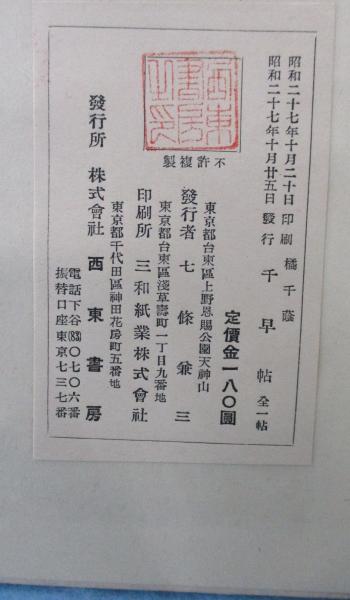 昭和二十七年十月二十日印刷
昭和二十七年十月廿五日發行
橘千蔭
千早帖 全一帖
定價金一八〇圓
西東書房之印
不許複製
東京都台東區上野恩賜公園天神山
發行者 七條兼三
東京都台東區淺草壽町一丁目九番地
印刷所 三和紙業株式會社
東京都千代田區神田花房町五番地
發行所 株式會社 西東書房
電話下谷(83)〇七〇六番
振替口座東京七三七番